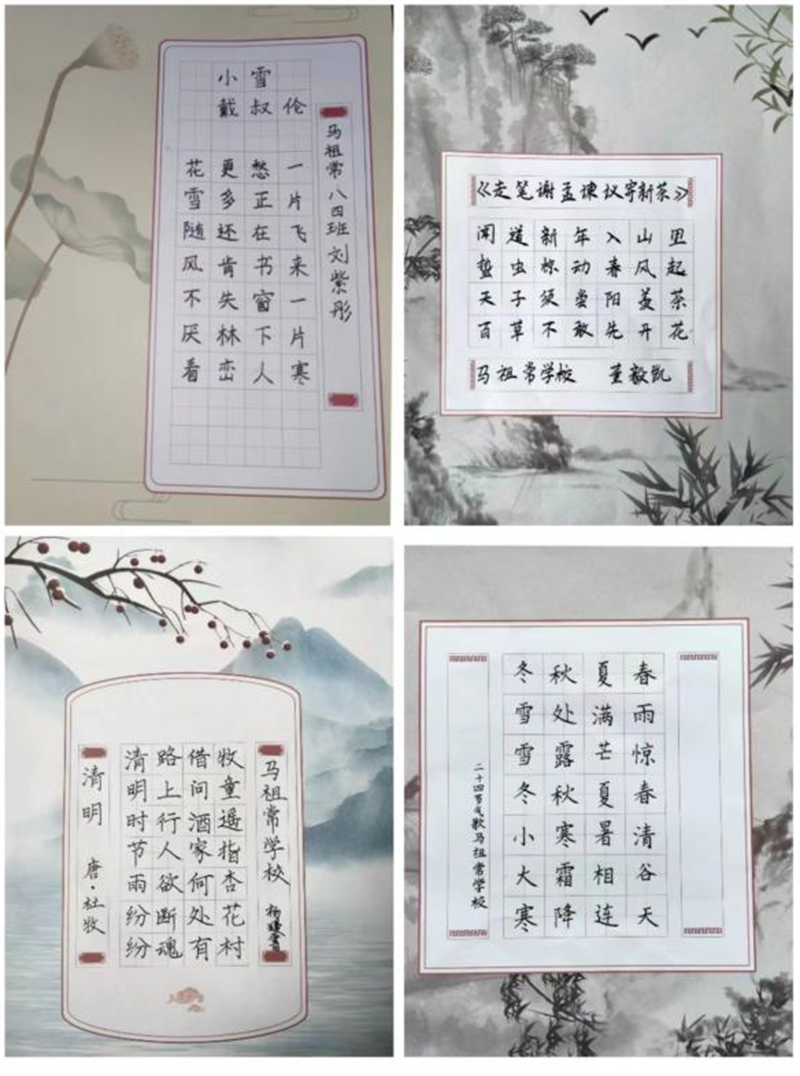 小雪
戴叔伦
花雪随风不厌看
更多还肯失林峦
愁正在书窗下人
一片飞来一片寒
马祖常八四班刘紫彤
《走笔谢孟谏议寄新茶》
闻道新年入山里
蛰虫惊动春风起
天子须尝阳羡茶
百草不敢先开花
马祖常学校 董毅凯
清明 唐·杜牧
清明时节雨纷纷
路上行人欲断魂
借问酒家何处有
牧童遥指杏花村
马祖常学校 杨
春雨惊春清谷天
夏满芒夏暑相连
秋处露秋寒霜降
冬雪雪冬小大寒
二十四节气歌马祖常学校